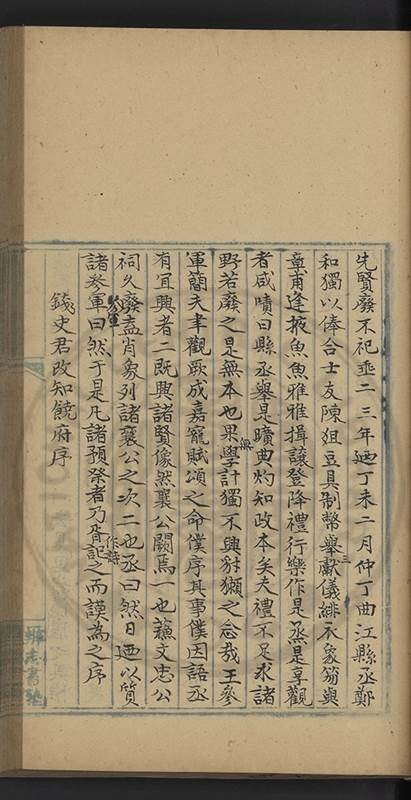 先賢廢不祀垂二三年廼丁未二月仲丁曲江縣丞鄭
和獨以俸合士友陳俎豆具制幣舉三獻儀緋衣象笏與
章甫逢掖魚魚雅雅揖讓登降禮行樂作是烝是享觀
者咸嘖曰縣丞舉是曠典灼知政本矣夫禮不足求諸
野若廢之是無本也果無學計獨不興豺獺之念哉王參
軍簡夫聿觀厥成嘉寵賦頌之命僕序其事僕因語丞
有宜興者二既興諸賢像然襄公闕焉一也蘓文忠公
祠久廢盍肖象列諸襄公之次二也丞曰然日廼以質
諸參軍參軍曰然于是凡諸預祭者乃胥作詩記之而謨為之序
錢史君改知饒府序